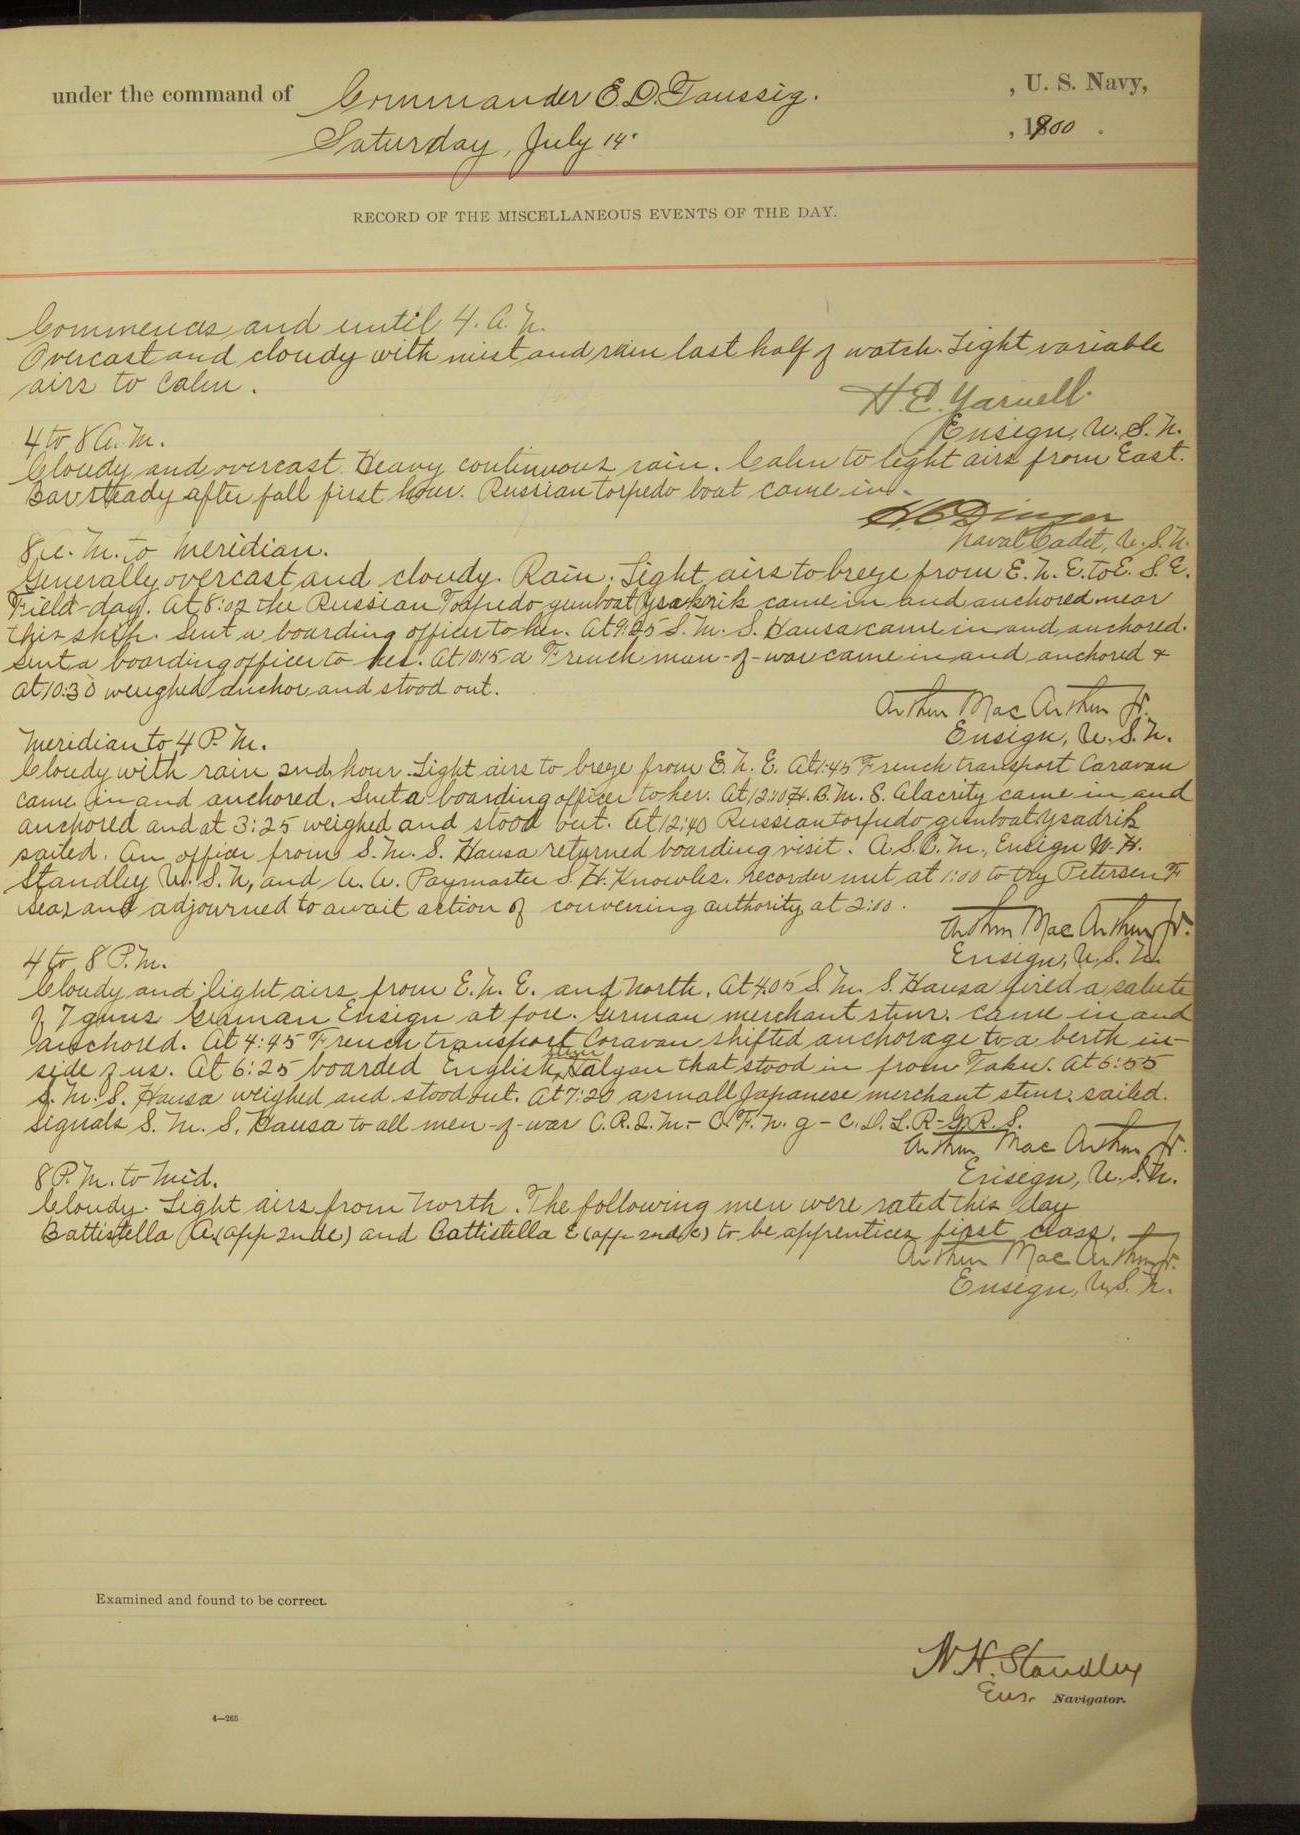 under the command of Commander E. D. Taussig. , U. S. Navy,
Saturday, July 14. , 1900 .
RECORD OF THE MISCELLANEOUS EVENTS OF THE DAY.
Commences and until 4. A. M.
Overcast and cloudy with mist and rain last half of watch. Light variable
airs to calm.
H. E. Yarnell.
Ensign, U. S. N.
4 to 8 A. M.
Cloudy and overcast. Heavy continuous rain. Calm to light airs from East.
Bar steady after fall first hour. Russian torpedo boat came in.
H C Dinger
Naval Cadet, U. S. N.
8 A. M. to Meridian.
Generally overcast and cloudy. Rain. Light airs to breeze from E. N. E. to E. S. E.
Field-day. At 8:02 the Russian Torpedo gunboat came in and anchored near
this ship. Sent a boarding officer to her. At 9:25 S. M. S. Hansa came in and anchored.
Sent a boarding officer to her. At 10:15 a French man-of-war came in and anchored &
at 10:30 weighed anchor and stood out.
Arthur Mac Arthur Jr.
Ensign, U. S. N.
Meridian to 4 P. M.
Cloudy with rain 2nd, hour. Light airs to breeze from E. N. E. At 1:45 French transport Caravan
came in and anchored. Sent a boarding officer to her. At 12:10 H. B. M. S. Alacrity came in and
anchored and at 3:25 weighed and stood out. At 12:40 Russian torpedo gunboat Ysadrik
sailed. An officer from S. M. S. Hansa returned boarding visit. A. S. C. M., Ensign W. H.
Standley U. S. N., and A. A. Paymaster S. H. Knowles. Recorder met at 1:00 to try Petersen F
seas and adjourned to await action of convening authority at 2:00.
Arthur Mac Arthur Jr.
Ensign, U. S. N.
4 to 8 P. M.
Cloudy and light airs from E. N. E. and North. At 4.05 S. M. S. Hansa fired a salute
of 7 guns German Ensign at fore. German merchant stmr. came in and
anchored. At 4:45 French transport Caravan shifted anchorage to a berth in-
side of us. At 6:25 boarded English stmr Kalgan that stood in from Taku. At 6:55
S. M. S. Hansa weighed and stood out. At 7:20 a small Japanese merchant stmr. sailed.
Signals S. M. S. Hansa to all men-of-war C. R. Q. M. - C. F. N. G - C. D. L. R - G. R. S.
Arthur Mac Arthur Jr.
Ensign, U. S. N.
8 P. M. to Mid.
Cloudy. Light airs from North. The following men were rated this day
Battistella A. (app 2nd c) and Battistella E (app 2nd c) to be apprentices first class.
Arthur Mac Arthur Jr.
Ensign, U. S. N.
Examined and found to be correct.
W. H. Standley
Ens. Navigator.
4—265